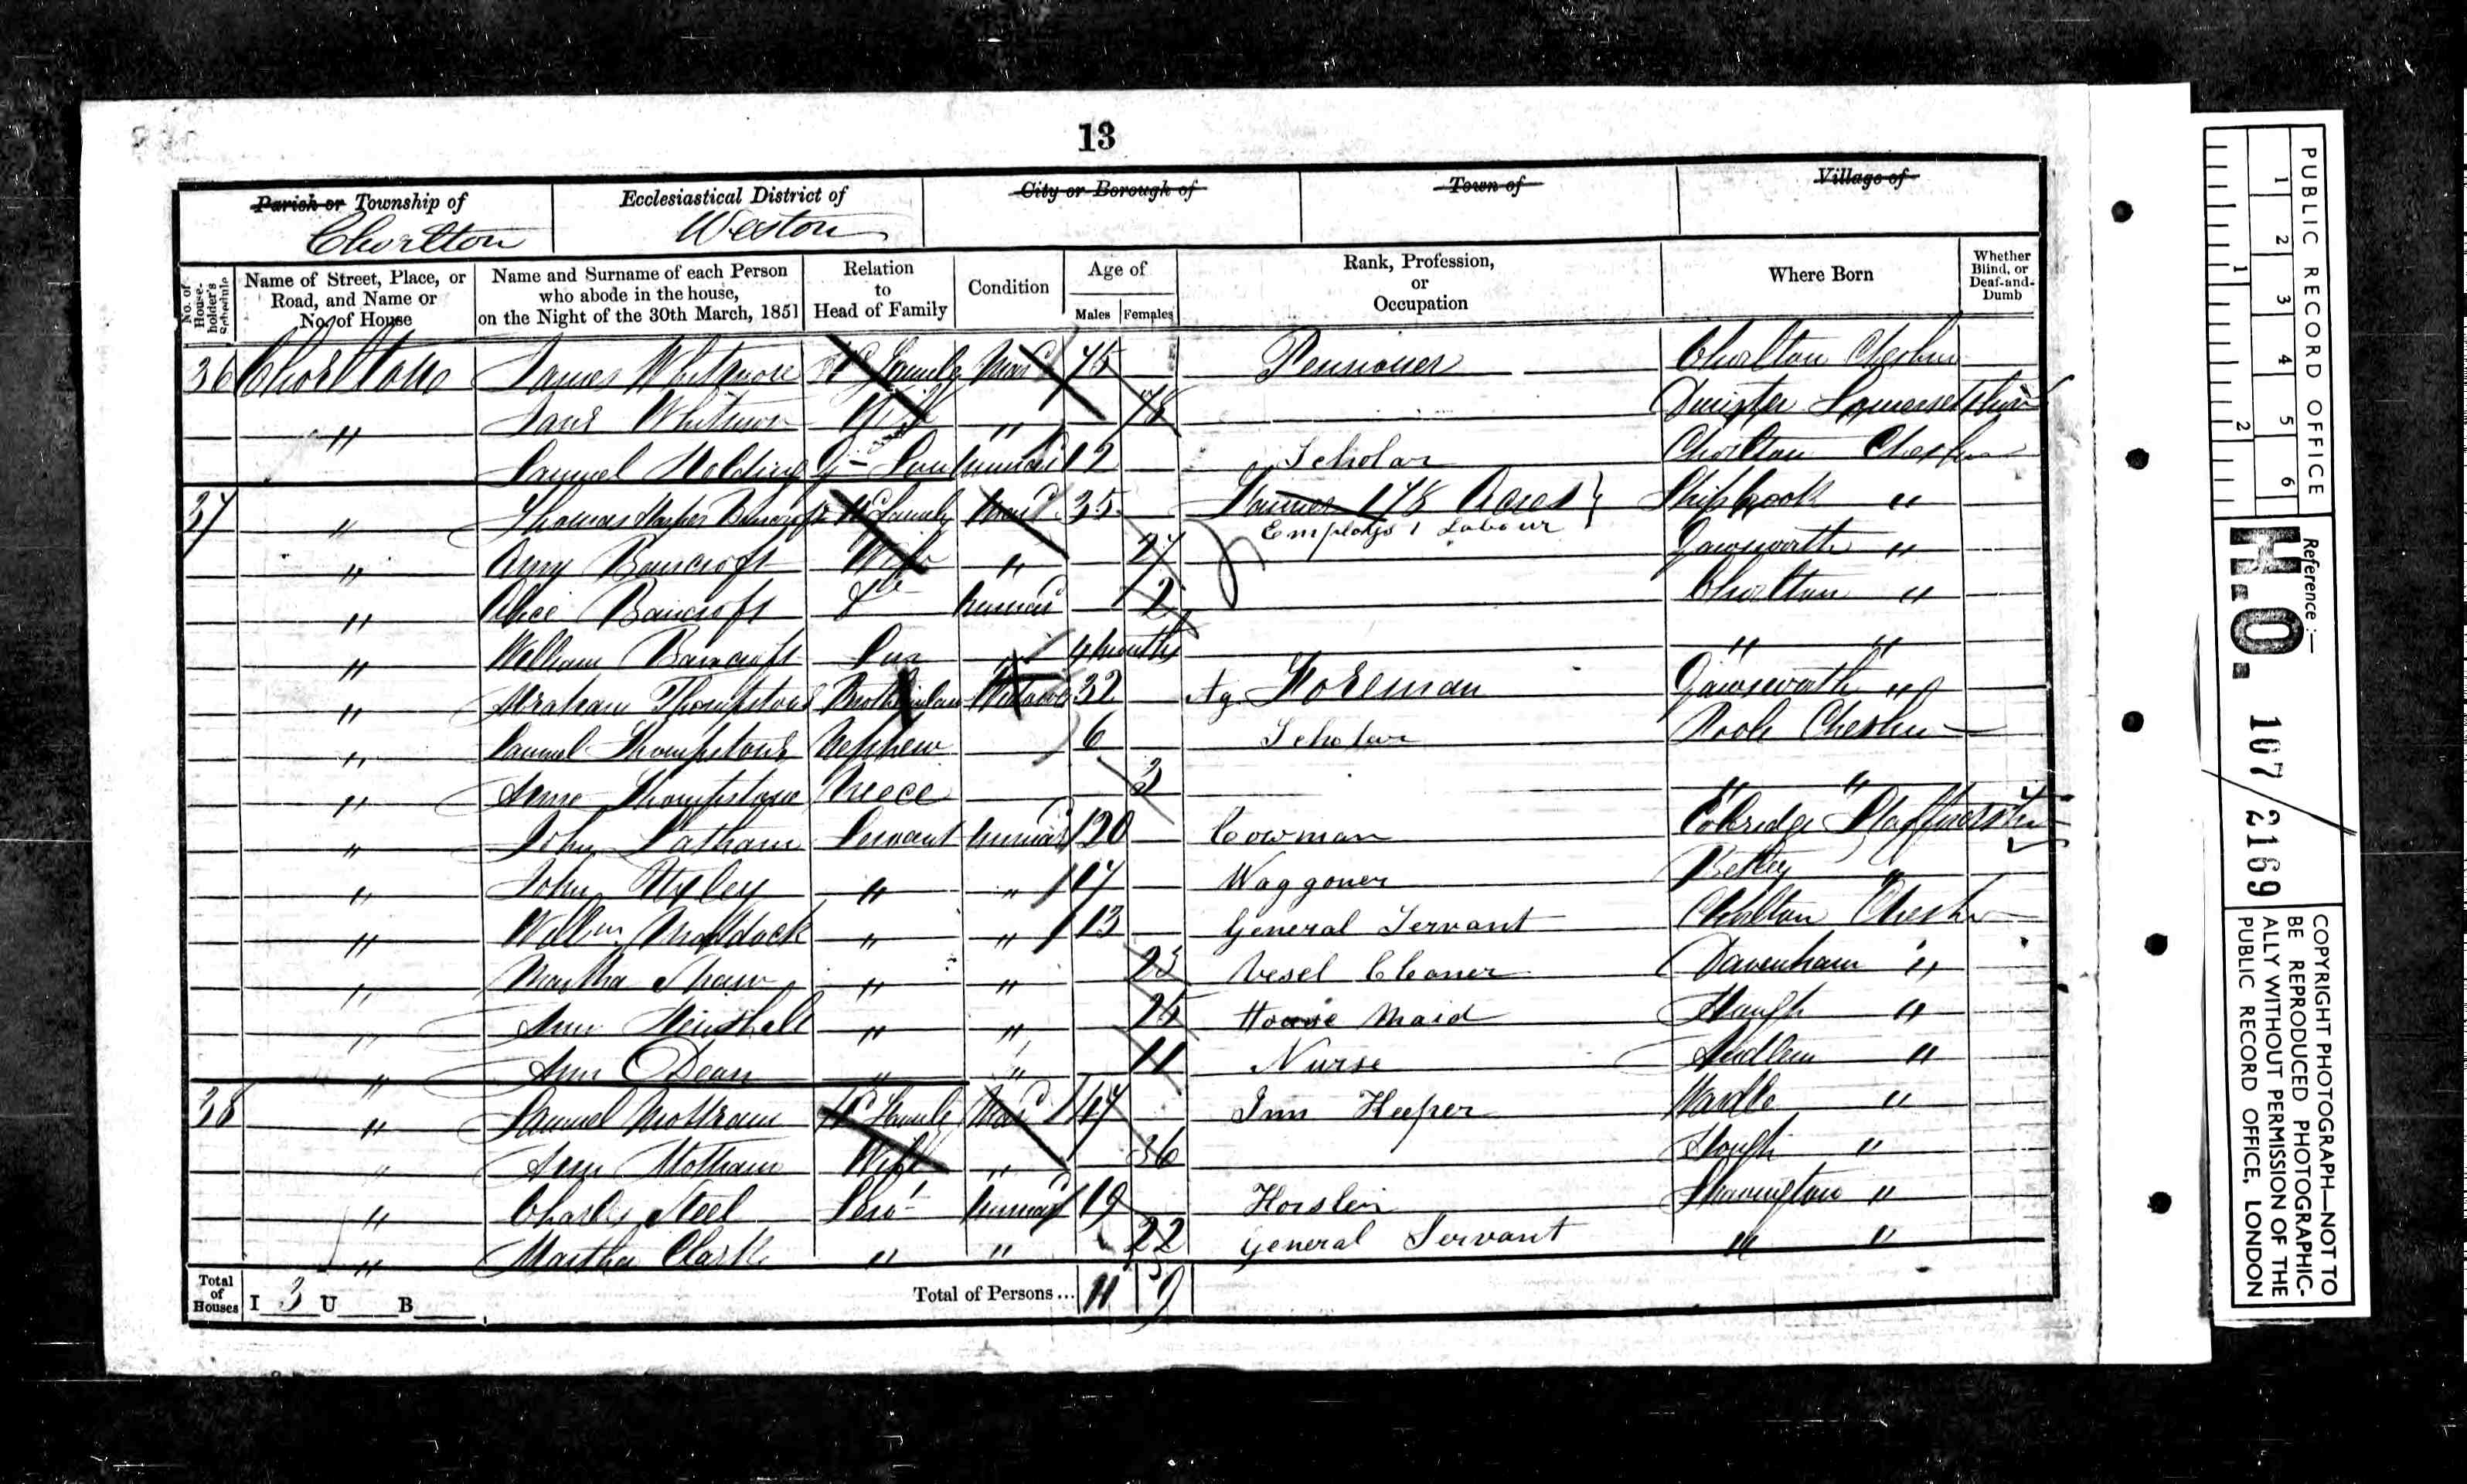 13
Parish or Township of Ecclesiastical District of City or Borough of Town of Village of
Chorlton Weston
No. of House-holder's Schedule Name of Street, Place, or Road, and Name or No. of House Name and Surname of each Person who abode in the house, on the Night of the 30th March, 1851 Relation to Head of Family Condition Age of Males Females Rank, Profession, or Occupation Where Born Whether Blind, or Deaf-and-Dumb
36 Chorlton James Whitmore Hd Family Mard 75 Pensioner Chorlton Cheshire
" Jane Whitmore Wife " 78 Somersetshire
Samuel Holding G-Son Unmard 12 Scholar Chorlton Cheshire
37 " Thomas Harper Bancroft Hd Family Mard 35 Farmer 178 Acres } Shipbrook "
Employs 1 Labour
" Amy Bancroft Wife " 27 Gawsworth "
" Alice Bancroft Unmard 2 Chorlton "
" William Bancroft Son " 4 months " "
" Abraham Thompstone Brotherinlaw Widower 32 Ag Foreman Gawsworth "
" Samuel Thompstone Nephew 6 Scholar Poole Cheshire
" Anne Thompstone Neece 3 " "
" John Latham Servant Unmard 20 Cowman Cobridge Staffordshire
" John " " 17 Waggoner Betley "
" Willm Maddock " " 13 General Servant Chorlton Cheshire
" Martha Shaw " " 23 Vesel Cleaner Davenham "
" Ann Henshall " " 25 House Maid Hough "
" Ann Dean " " 11 Nurse Audlem "
38 " Samuel Mottram Hd Family Mard 47 Inn Keeper Wardle "
" Ann Mottram Wife " 36 Hough "
" Charles Steel Serv Unmard 19 Horsler Shavington "
" Martha Clark " " 22 General Servant " "
Total of Houses I 3 U B Total of Persons... 11 9
PUBLIC RECORD OFFICE
1 2 3 4 5 6
1 2
Reference:-
H.O. 107 / 2169
COPYRIGHT PHOTOGRAPH—NOT TO
BE REPRODUCED PHOTOGRAPHIC-
ALLY WITHOUT PERMISSION OF THE
PUBLIC RECORD OFFICE, LONDON